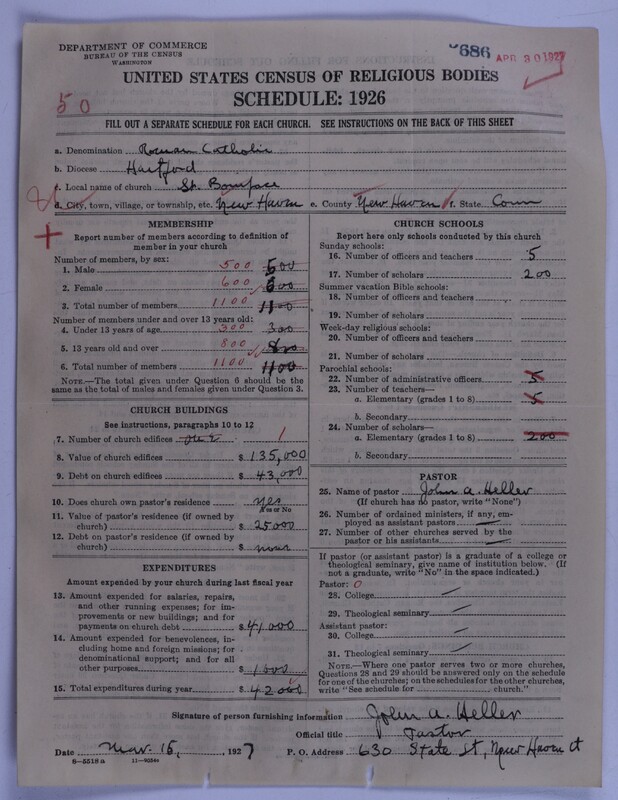 DEPARTMENT OF COMMERCE
BUREAU OF THE CENSUS
WASHINGTON
686 APR 30 1927
UNITED STATES CENSUS OF RELIGIOUS BODIES
50
SCHEDULE: 1926
FILL OUT A SEPARATE SCHEDULE FOR EACH CHURCH. SEE INSTRUCTIONS ON THE BACK OF THIS SHEET
a. Denomination Roman Catholic
b. Diocese Hartford
c. Local name of church St. Boniface
d. City, town, village, or township, etc. New Haven e. County New Haven f. State Conn
MEMBERSHIP
Report number of members according to definition of
member in your church
Number of members, by sex:
1. Male 500 500
2. Female 600 600
3. Total number of members 1100 1100
Number of members under and over 13 years old:
4. Under 13 years of age 300 300
5. 13 years old and over 800 800
6. Total number of members 1100 1100
NOTE.—The total given under Question 6 should be the
same as the total of males and females given under Question 3.
CHURCH BUILDINGS
See instructions, paragraphs 10 to 12
7. Number of church edifices one 1
8. Value of church edifices $ 135,000
9. Debt on church edifices $ 43,000
10. Does church own pastor's residence yes
Yes or No
11. Value of pastor's residence (if owned by
church) $ 25000
12. Debt on pastor's residence (if owned by
church) $ none
EXPENDITURES
Amount expended by your church during last fiscal year
13. Amount expended for salaries, repairs,
and other running expenses; for im-
provements or new buildings; and for
payments on church debt $ 41,000
14. Amount expended for benevolences, in-
cluding home and foreign missions; for
denominational support; and for all
other purposes $ 1000
15. Total expenditures during year $ 42,000
CHURCH SCHOOLS
Report here only schools conducted by this church
Sunday schools:
16. Number of officers and teachers 5
17. Number of scholars 200
Summer vacation Bible schools:
18. Number of officers and teachers
19. Number of scholars
Week-day religious schools:
20. Number of officers and teachers
21. Number of scholars
Parochial schools:
22. Number of administrative officers 5
23. Number of teachers—
a. Elementary (grades 1 to 8) 5
b. Secondary
24. Number of scholars—
a. Elementary (grades 1 to 8) 200
b. Secondary
PASTOR
25. Name of pastor John A. Heller
(If church has no pastor, write "None")
26. Number of ordained ministers, if any, em-
ployed as assistant pastors —
27. Number of other churches served by the
pastor or his assistants —
If pastor (or assistant pastor) is a graduate of a college or
theological seminary, give name of institution below. (If
not a graduate, write "No" in the space indicated.)
Pastor: 0
28. College —
29. Theological seminary —
Assistant pastor:
30. College —
31. Theological seminary —
NOTE.—Where one pastor serves two or more churches,
Questions 28 and 29 should be answered only on the schedule
for one of the churches; on the schedules for the other churches,
write "See schedule for church."
Signature of person furnishing information John A. Heller
Official title Pastor
Date Mar. 15, 1927 P. O. Address 630 State St, New Haven Ct
8—5518a 11—9054a